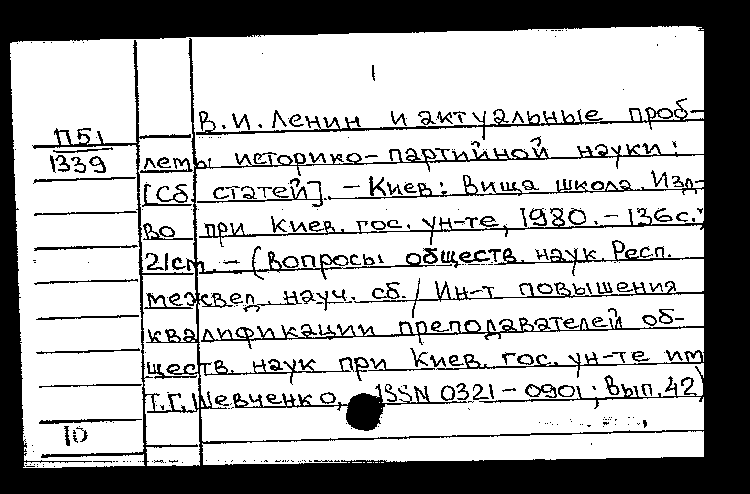 1
В.И.Ленин и актуальные проб-
П51
1339 лемы историко-партийной науки:
[Сб. статей]. - Киев: Вища школа. Изд-
во при Киев. гос. ун-те, 1980. - 136с.;
21cm. - (Вопросы обществ. наук. Респ.
межвед. науч. сб. / Ин-т повышения
квалификации преподавателей об-
ществ. наук при Киев. гос. ун-те им
Т.Г. Шевченко, ISSN 0321-0901; Вып. 42)
10